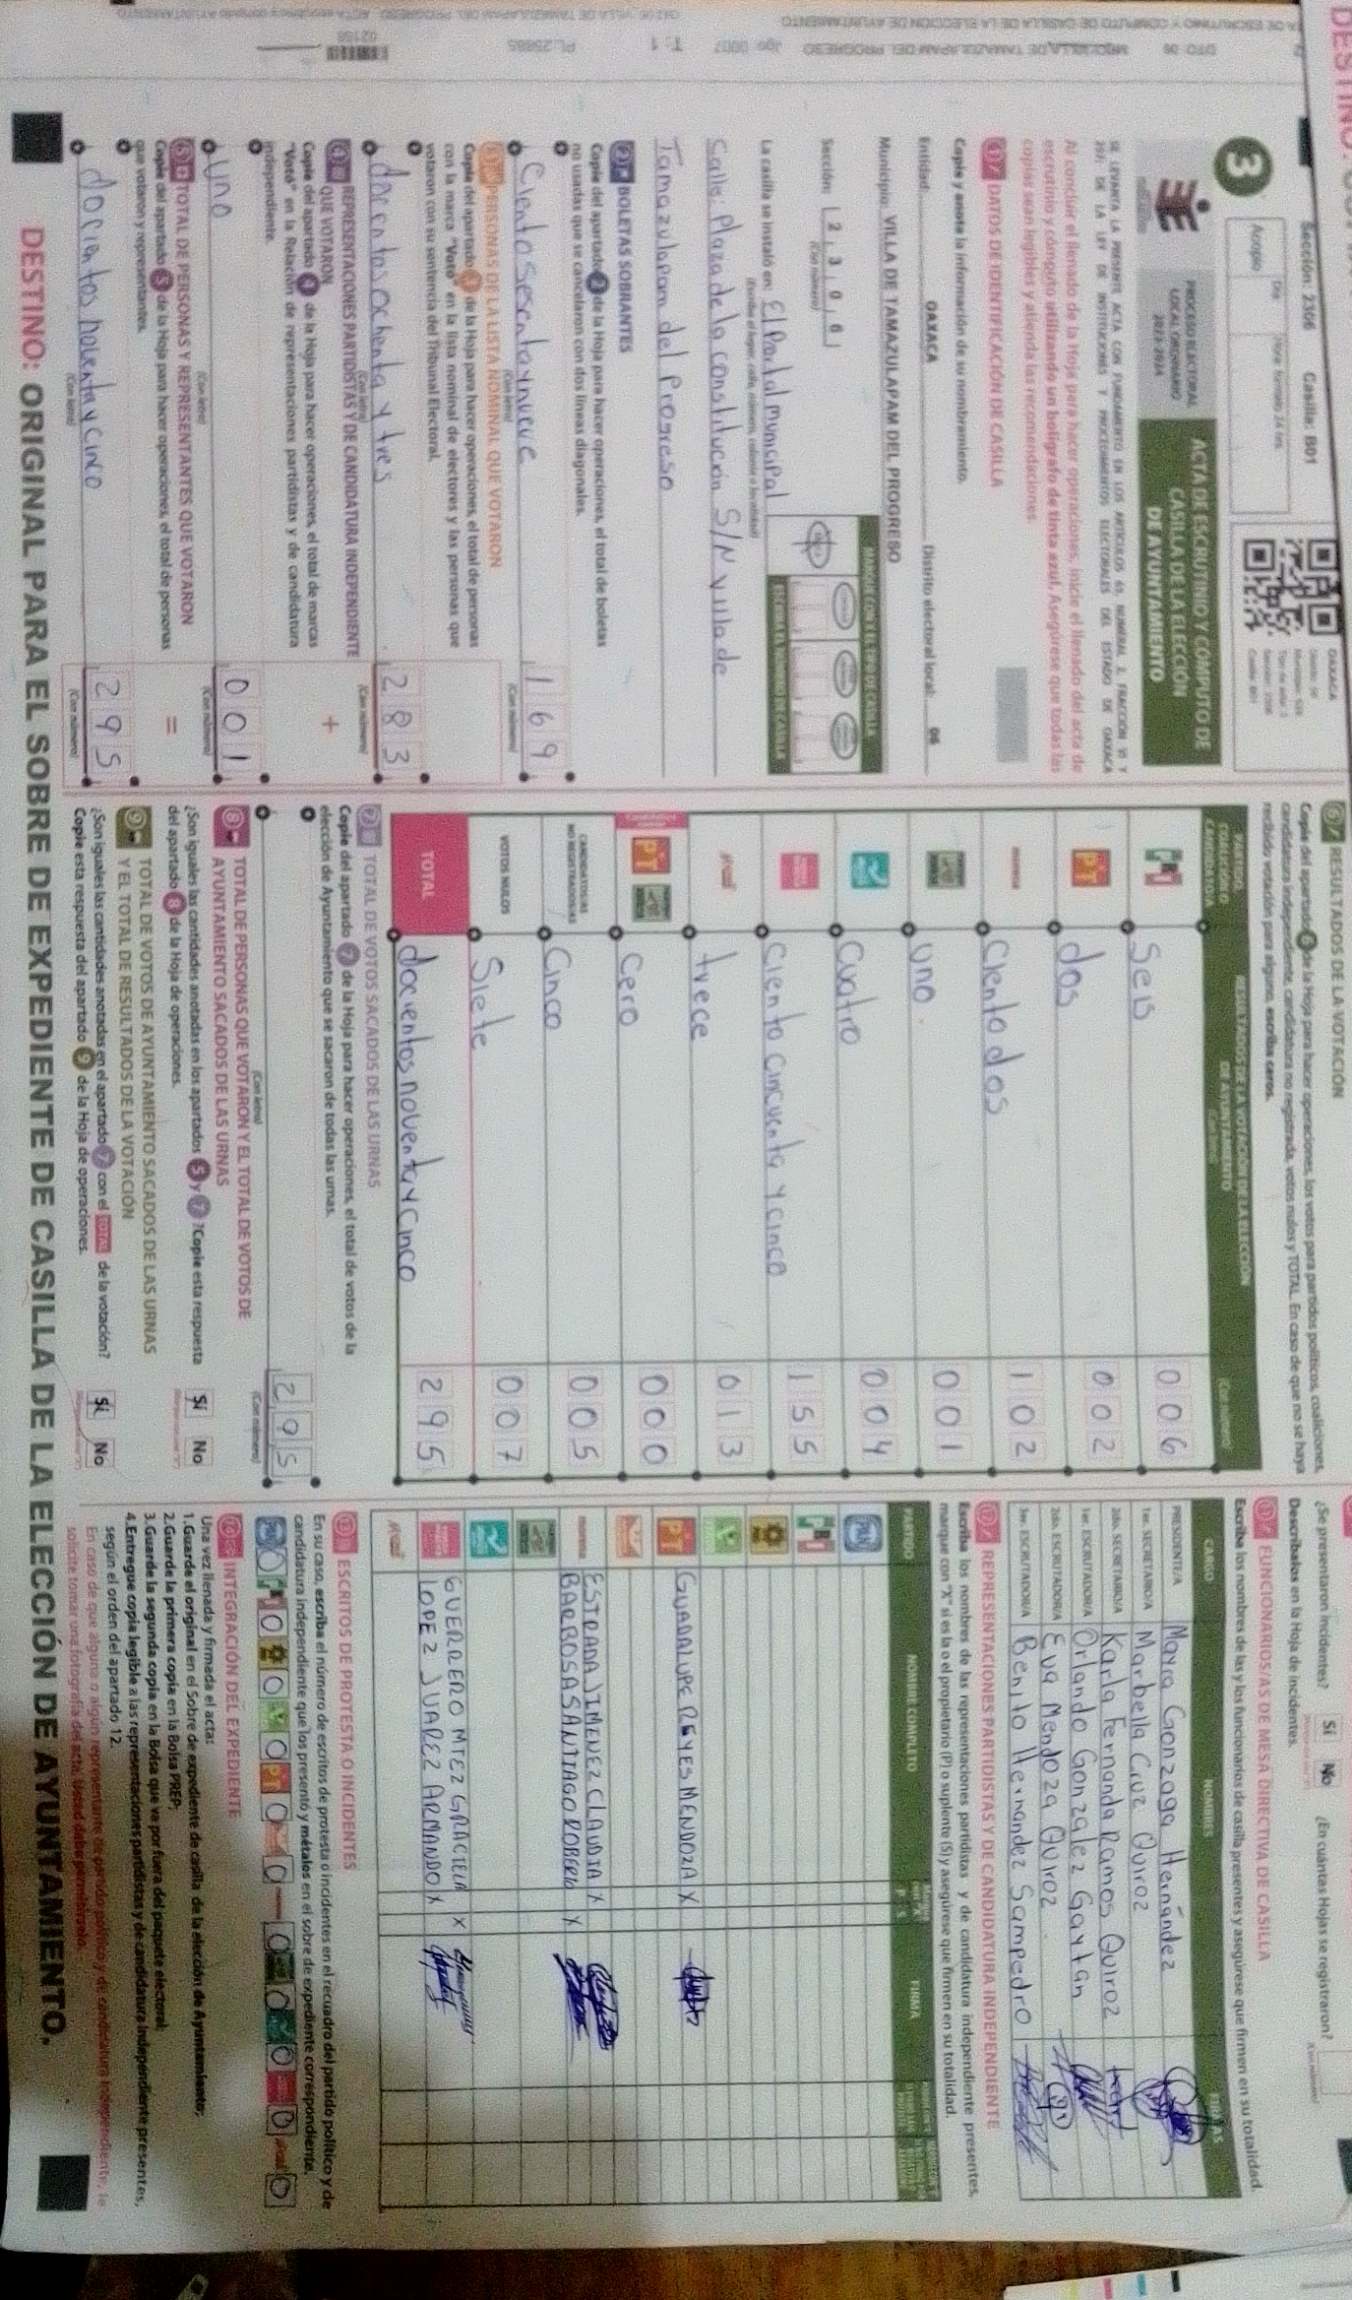 Sección: 2306 Casilla: B01
3
Acopio
Día
PROCESO ELECTORAL
LOCAL ORDINARIO
2023-2024
ACTA DE ESCRUTINIO Y CÓMPUTO DE
CASILLA DE LA ELECCIÓN
DE AYUNTAMIENTO
OAXACA
SE LEVANTA LA PRESENTE ACTA CON FUNDAMENTO EN LOS ARTÍCULOS
DE LA LEY DE INSTITUCIONES Y PROCEDIMIENTOS ELECTORALES DEL ESTADO DE OAXACA
Al concluir el llenado de la Hoja para hacer operaciones, inicie el llenado del acta de
escrutinio y cómputo utilizando un bolígrafo de tinta azul. Asegúrese que todas las
copias sean legibles y atienda las recomendaciones.
1 DATOS DE IDENTIFICACIÓN DE CASILLA
Copie y anote la información de su nombramiento.
Entidad: OAXACA Distrito electoral local: 06
Municipio: VILLA DE TAMAZULAPAM DEL PROGRESO
Sección: 2 3 0 6
(Con número)
MARQUE CON X EL TIPO DE CASILLA
ESCRIBA EL NÚMERO DE CASILLA
La casilla se instaló en: El Portal municipal
(Escriba el lugar, calle, número, colonia o localidad)
calle: Plaza de la constitucion S/N villa de
Tamazulapam del Progreso
2 BOLETAS SOBRANTES
Copie del apartado 2 de la Hoja para hacer operaciones, el total de boletas
no usadas que se cancelaron con dos líneas diagonales.
Ciento sesenta y nueve 169
(Con letra) (Con número)
3 PERSONAS DE LA LISTA NOMINAL QUE VOTARON
Copie del apartado 3 de la Hoja para hacer operaciones, el total de personas
con la marca "Votó" en la lista nominal de electores y las personas que
votaron con su sentencia del Tribunal Electoral.
docentos ochenta y tres 283
(Con letra) (Con número)
4 REPRESENTACIONES PARTIDISTAS Y DE CANDIDATURA INDEPENDIENTE
QUE VOTARON +
Copie del apartado 4 de la Hoja para hacer operaciones, el total de marcas
"Votó" en la Relación de representaciones partidistas y de candidatura
independiente.
uno 001
(Con letra) (Con número)
5 TOTAL DE PERSONAS Y REPRESENTANTES QUE VOTARON
Copie del apartado 5 de la Hoja para hacer operaciones, el total de personas =
que votaron y representantes.
docientos noventa y cinco 295
(Con letra) (Con número)
6 RESULTADOS DE LA VOTACIÓN
Copie del apartado 6 de la Hoja para hacer operaciones, los votos para partidos políticos, coaliciones,
candidatura independiente, candidatura no registrada, votos nulos y TOTAL. En caso de que no se haya
recibido votación para alguno, escriba ceros.
PARTIDO, COALICIÓN O CANDIDATO/A
RESULTADOS DE LA VOTACIÓN DE LA ELECCIÓN
DE AYUNTAMIENTO
(Con número)
PRI Seis 006
PT dos 002
morena Ciento dos 102
uno. 001
Cuatro 004
Ciento cincuenta y cinco 155
trece 013
PT Cero 000
CANDIDATOS/AS NO REGISTRADOS/AS Cinco 005
VOTOS NULOS Siete 007
TOTAL docientos noventa y cinco 295
7 TOTAL DE VOTOS SACADOS DE LAS URNAS
Copie del apartado 7 de la Hoja para hacer operaciones, el total de votos de la
elección de Ayuntamiento que se sacaron de todas las urnas.
295
(Con letra) (Con número)
8 TOTAL DE PERSONAS QUE VOTARON Y EL TOTAL DE VOTOS DE
AYUNTAMIENTO SACADOS DE LAS URNAS
¿Son iguales las cantidades anotadas en los apartados 5 y 7? Copie esta respuesta Sí No
del apartado 8 de la Hoja de operaciones.
9 TOTAL DE VOTOS DE AYUNTAMIENTO SACADOS DE LAS URNAS
Y EL TOTAL DE RESULTADOS DE LA VOTACIÓN
¿Son iguales las cantidades anotadas en el apartado 7 con el TOTAL de la votación? Sí No
Copie esta respuesta del apartado 9 de la Hoja de operaciones.
¿Se presentaron incidentes? Sí No ¿En cuántas Hojas se registraron?
Descríbalos en la Hoja de incidentes.
FUNCIONARIOS/AS DE MESA DIRECTIVA DE CASILLA
Escriba los nombres de las y los funcionarios de casilla presentes y asegúrese que firmen en su totalidad.
CARGO NOMBRES FIRMAS
PRESIDENTE/A Mayra Gonzaga Hernández
1er. SECRETARIO/A Marbella Cruz Quiroz
2do. SECRETARIO/A Karla Fernanda Ramos Quiroz
1er. ESCRUTADOR/A Orlando Gonzalez Gaytan
2do. ESCRUTADOR/A Eva Mendoza Quiroz
3er. ESCRUTADOR/A Benito Hernandez Sampedro
REPRESENTACIONES PARTIDISTAS Y DE CANDIDATURA INDEPENDIENTE
Escriba los nombres de las representaciones partidistas y de candidatura independiente presentes,
marque con "X" si es la o el propietario (P) o suplente (S) y asegúrese que firmen en su totalidad.
PARTIDO NOMBRE COMPLETO FIRMA
PAN
PRI
PT GUADALUPE REYES MENDOZA X
morena ESTRADA JIMENEZ CLAUDIA X
BARROSA SANTIAGO ROBERTO X
GUERRERO MTEZ GRACIELA X
LOPEZ JUAREZ ARMANDO X
ESCRITOS DE PROTESTA O INCIDENTES
En su caso, escriba el número de escritos de protesta o incidentes en el recuadro del partido político y de
candidatura independiente que los presentó y métalos en el sobre de expediente correspondiente.
INTEGRACIÓN DEL EXPEDIENTE
Una vez llenada y firmada el acta:
1.Guarde el original en el Sobre de expediente de casilla de la elección de Ayuntamiento;
2.Guarde la primera copia en la Bolsa PREP;
3.Guarde la segunda copia en la Bolsa que va por fuera del paquete electoral;
4.Entregue copia legible a las representaciones partidistas y de candidatura independiente presentes,
según el orden del apartado 12.
En caso de que alguna o algún representante de partido político y de candidatura independiente, le
solicite tomar una fotografía del acta, usted debe permitírselo.
DESTINO: ORIGINAL PARA EL SOBRE DE EXPEDIENTE DE CASILLA DE LA ELECCIÓN DE AYUNTAMIENTO.